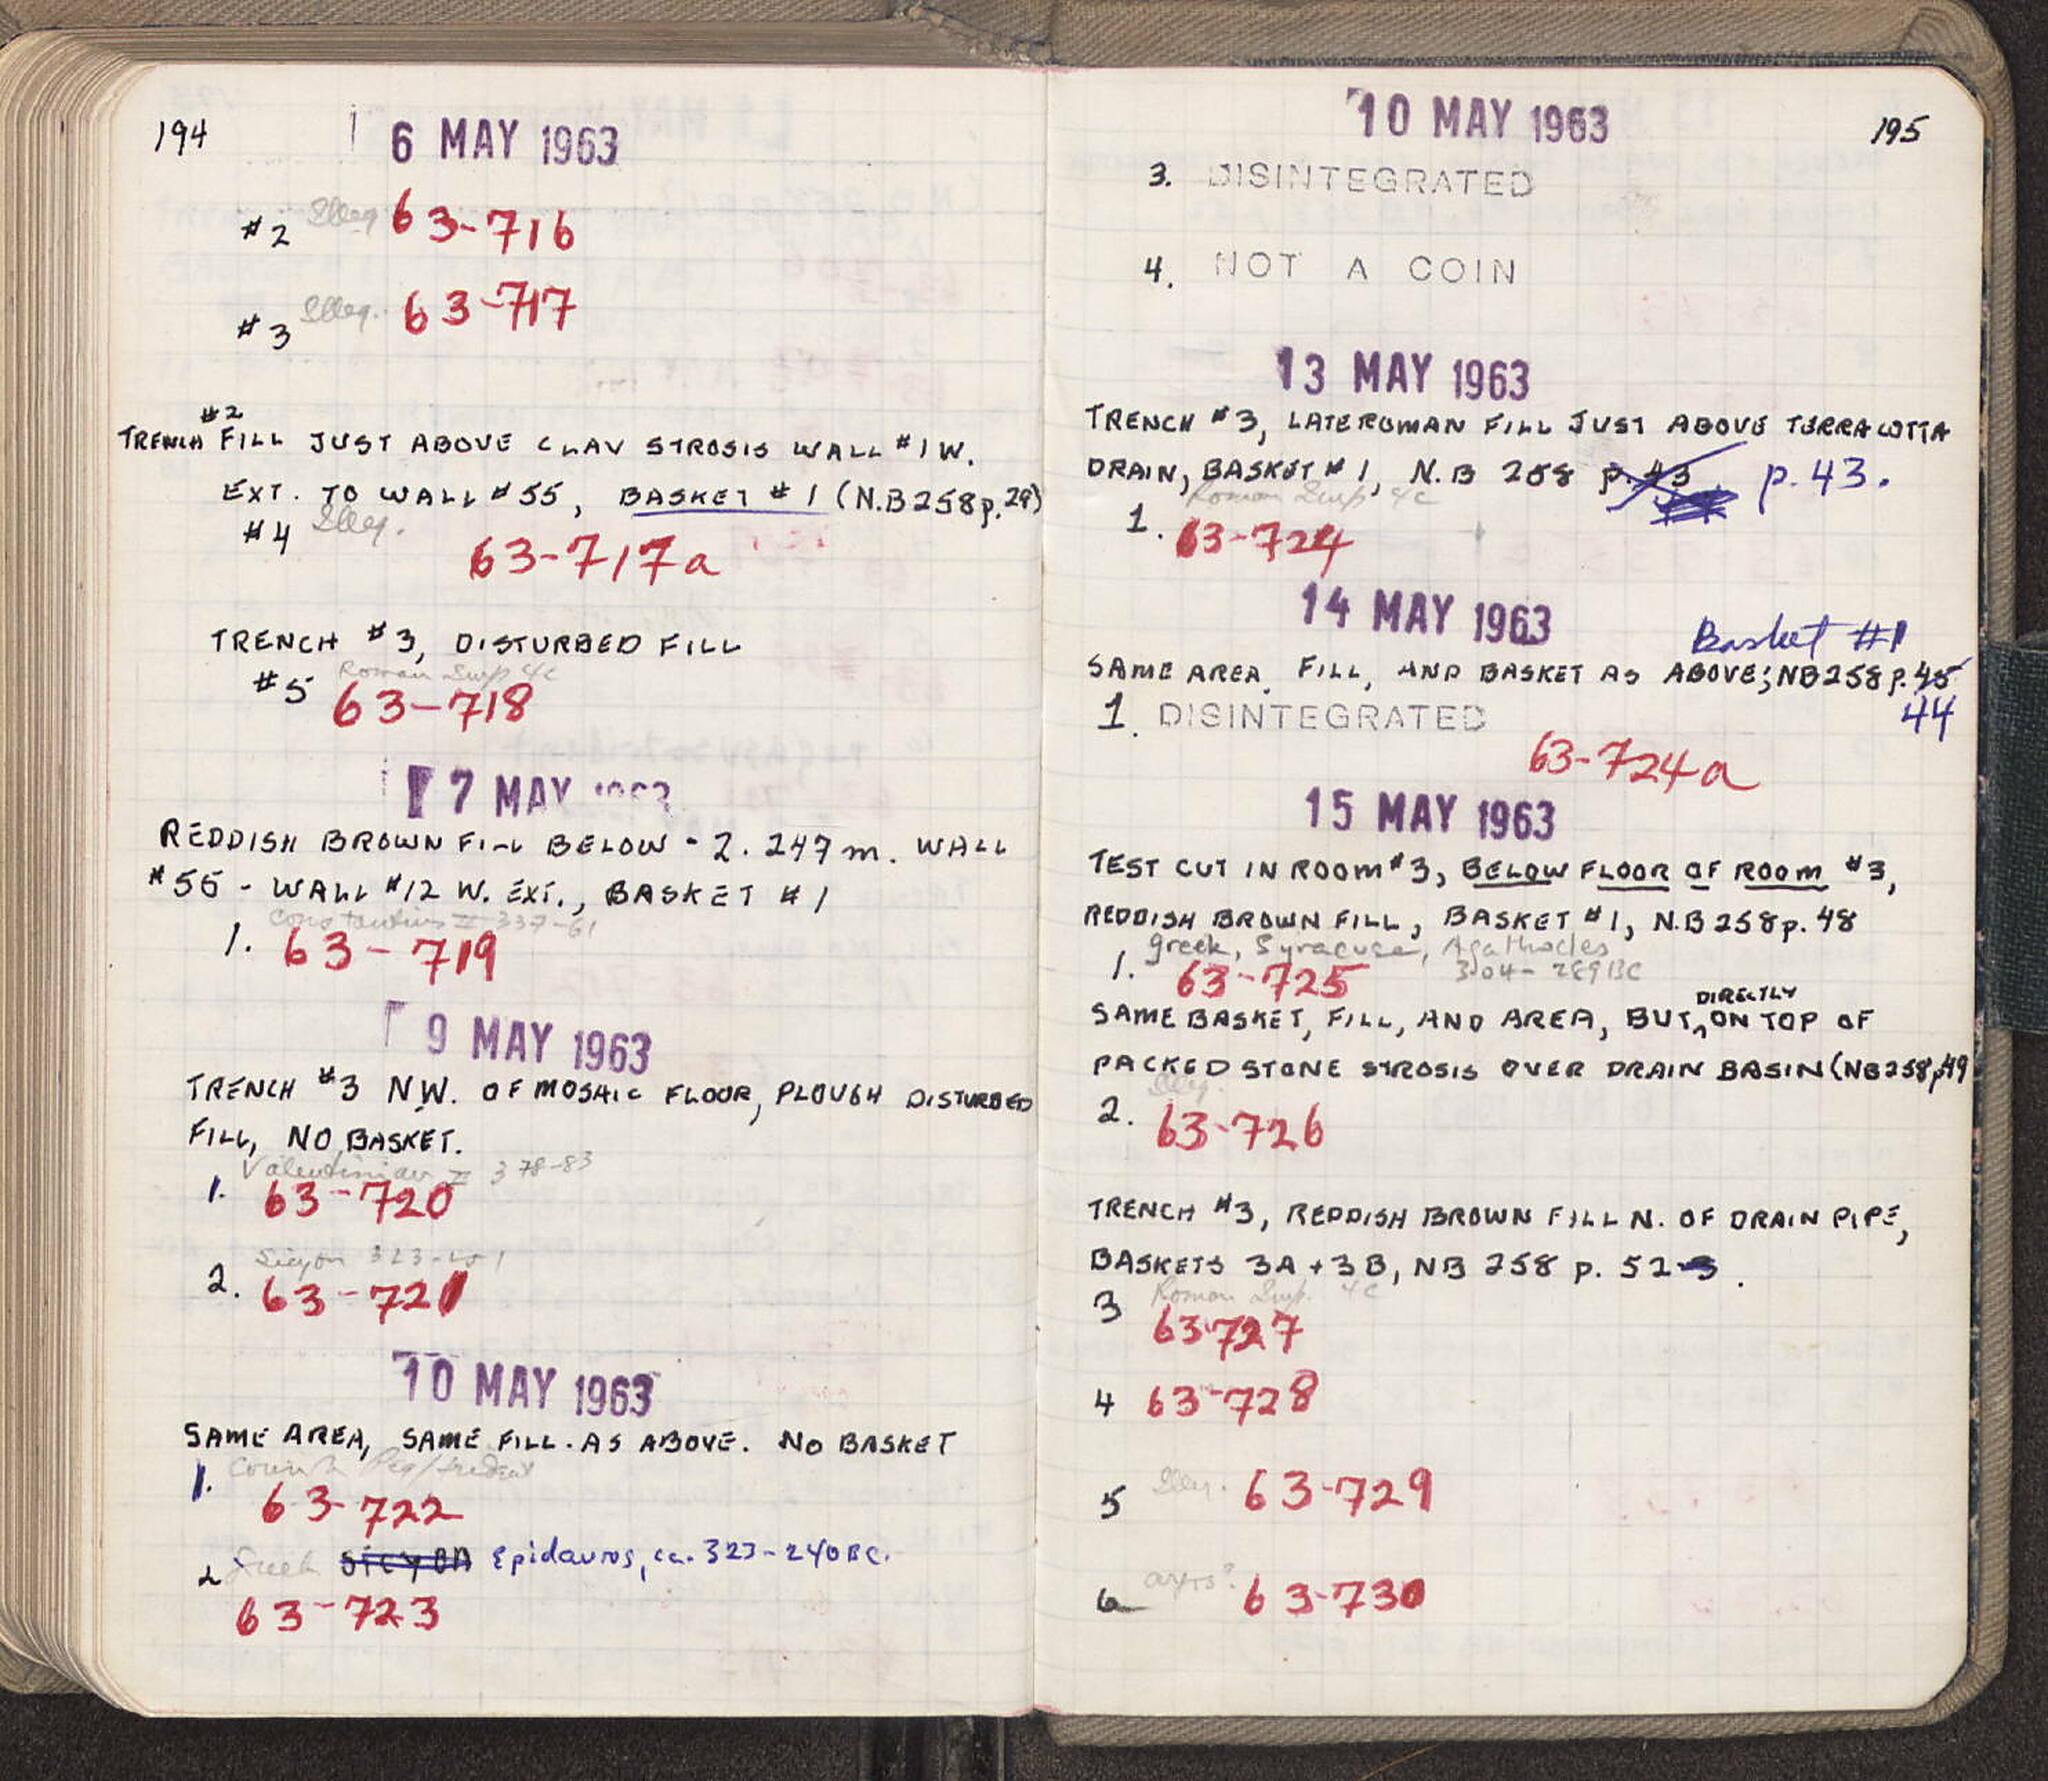 194
6 MAY 1963
#2 Illeg 63-716
#3 Illeg. 63-717
#2
TRENCH FILL JUST ABOVE CLAY STROSIS WALL #1 W.
EXT. TO WALL #55, BASKET #1 (N.B 258 p. 29)
#4 Illeg.
63-717a
TRENCH #3, DISTURBED FILL
Roman Imp 4c
#5 63-718
7 MAY 1963
REDDISH BROWN FILL BELOW - 2.247m. WALL
#55 - WALL #12 W. EXT., BASKET #1
Constantius II 337-61
1. 63-719
9 MAY 1963
TRENCH #3 NW. OF MOSAIC FLOOR, PLOUGH DISTURBED
FILL, NO BASKET.
Valentinian II 378-83
1. 63-720
Sicyon 323-251
2. 63-721
10 MAY 1963
SAME AREA, SAME FILL. AS ABOVE. NO BASKET
Corinth Peg/trident
1. 63-722
2 Greek Sicyon Epidauros, ca. 323-240 BC.
63-723
195
10 MAY 1963
3. DISINTEGRATED
4. NOT A COIN
13 MAY 1963
TRENCH #3, LATE ROMAN FILL JUST ABOVE TERRACOTTA
DRAIN, BASKET #1, N.B 258 p. 43 p. 43.
Roman Imp 4c
1. 63-724
14 MAY 1963
Basket #1
SAME AREA, FILL, AND BASKET AS ABOVE; NB 258 p. 45
44
1. DISINTEGRATED
63-724a
15 MAY 1963
TEST CUT IN ROOM #3, BELOW FLOOR OF ROOM #3,
REDDISH BROWN FILL, BASKET #1, N.B 258 p. 48
Greek, Syracuse, Agathocles
304-289 BC
1. 63-725
DIRECTLY
SAME BASKET, FILL, AND AREA, BUT ON TOP OF
PACKED STONE STROSIS OVER DRAIN BASIN (NB 258 p. 49
Illeg.
2. 63-726
TRENCH #3, REDDISH BROWN FILL N. OF DRAIN PIPE,
BASKETS 3A + 3B, NB 258 p. 52-3.
Roman Imp. 4c
3 63-727
4 63-728
5 Illeg. 63-729
6 63-730